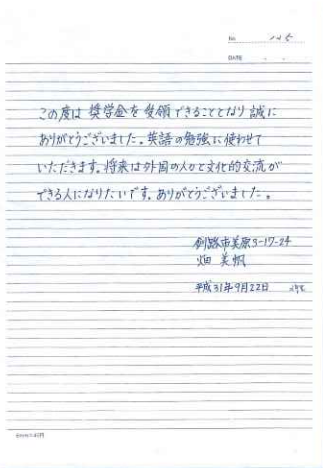 No.
DATE ・ ・
この度は奨学金を受領できることとなり誠に
ありがとうございました。英語の勉強に使わせて
いただきます。将来は外国の人々と文化的交流が
できる人になりたいです。ありがとうございました。
釧路市美原3-17-24
畑 美帆
平成31年9月22日